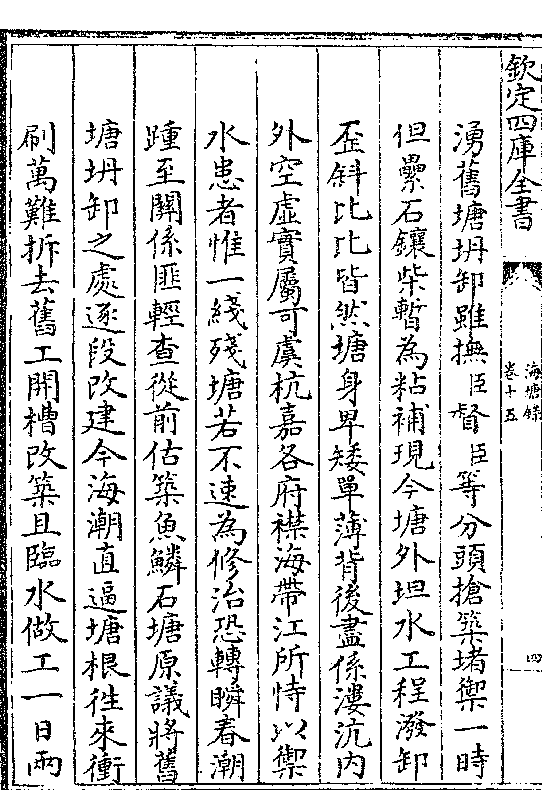 欽定四庫全書
海塘錄
卷十五
四
湧舊塘坍卸雖撫臣督臣等分頭搶築堵禦一時
但壘石鑲柴暫為粘補現今塘外坦水工程潑卸
歪斜比比皆然塘身卑矮單薄背後盡係漊沆内
外空虛實屬可虞杭嘉各府襟海帶江所恃以禦
水患者惟一綫殘塘若不速為修治恐轉瞬春潮
踵至關係匪輕查從前估築魚鱗石塘原議將舊
塘坍卸之處逐段改建今海潮直逼塘根徃來衝
刷萬難拆去舊工開槽改築且臨水做工一日兩